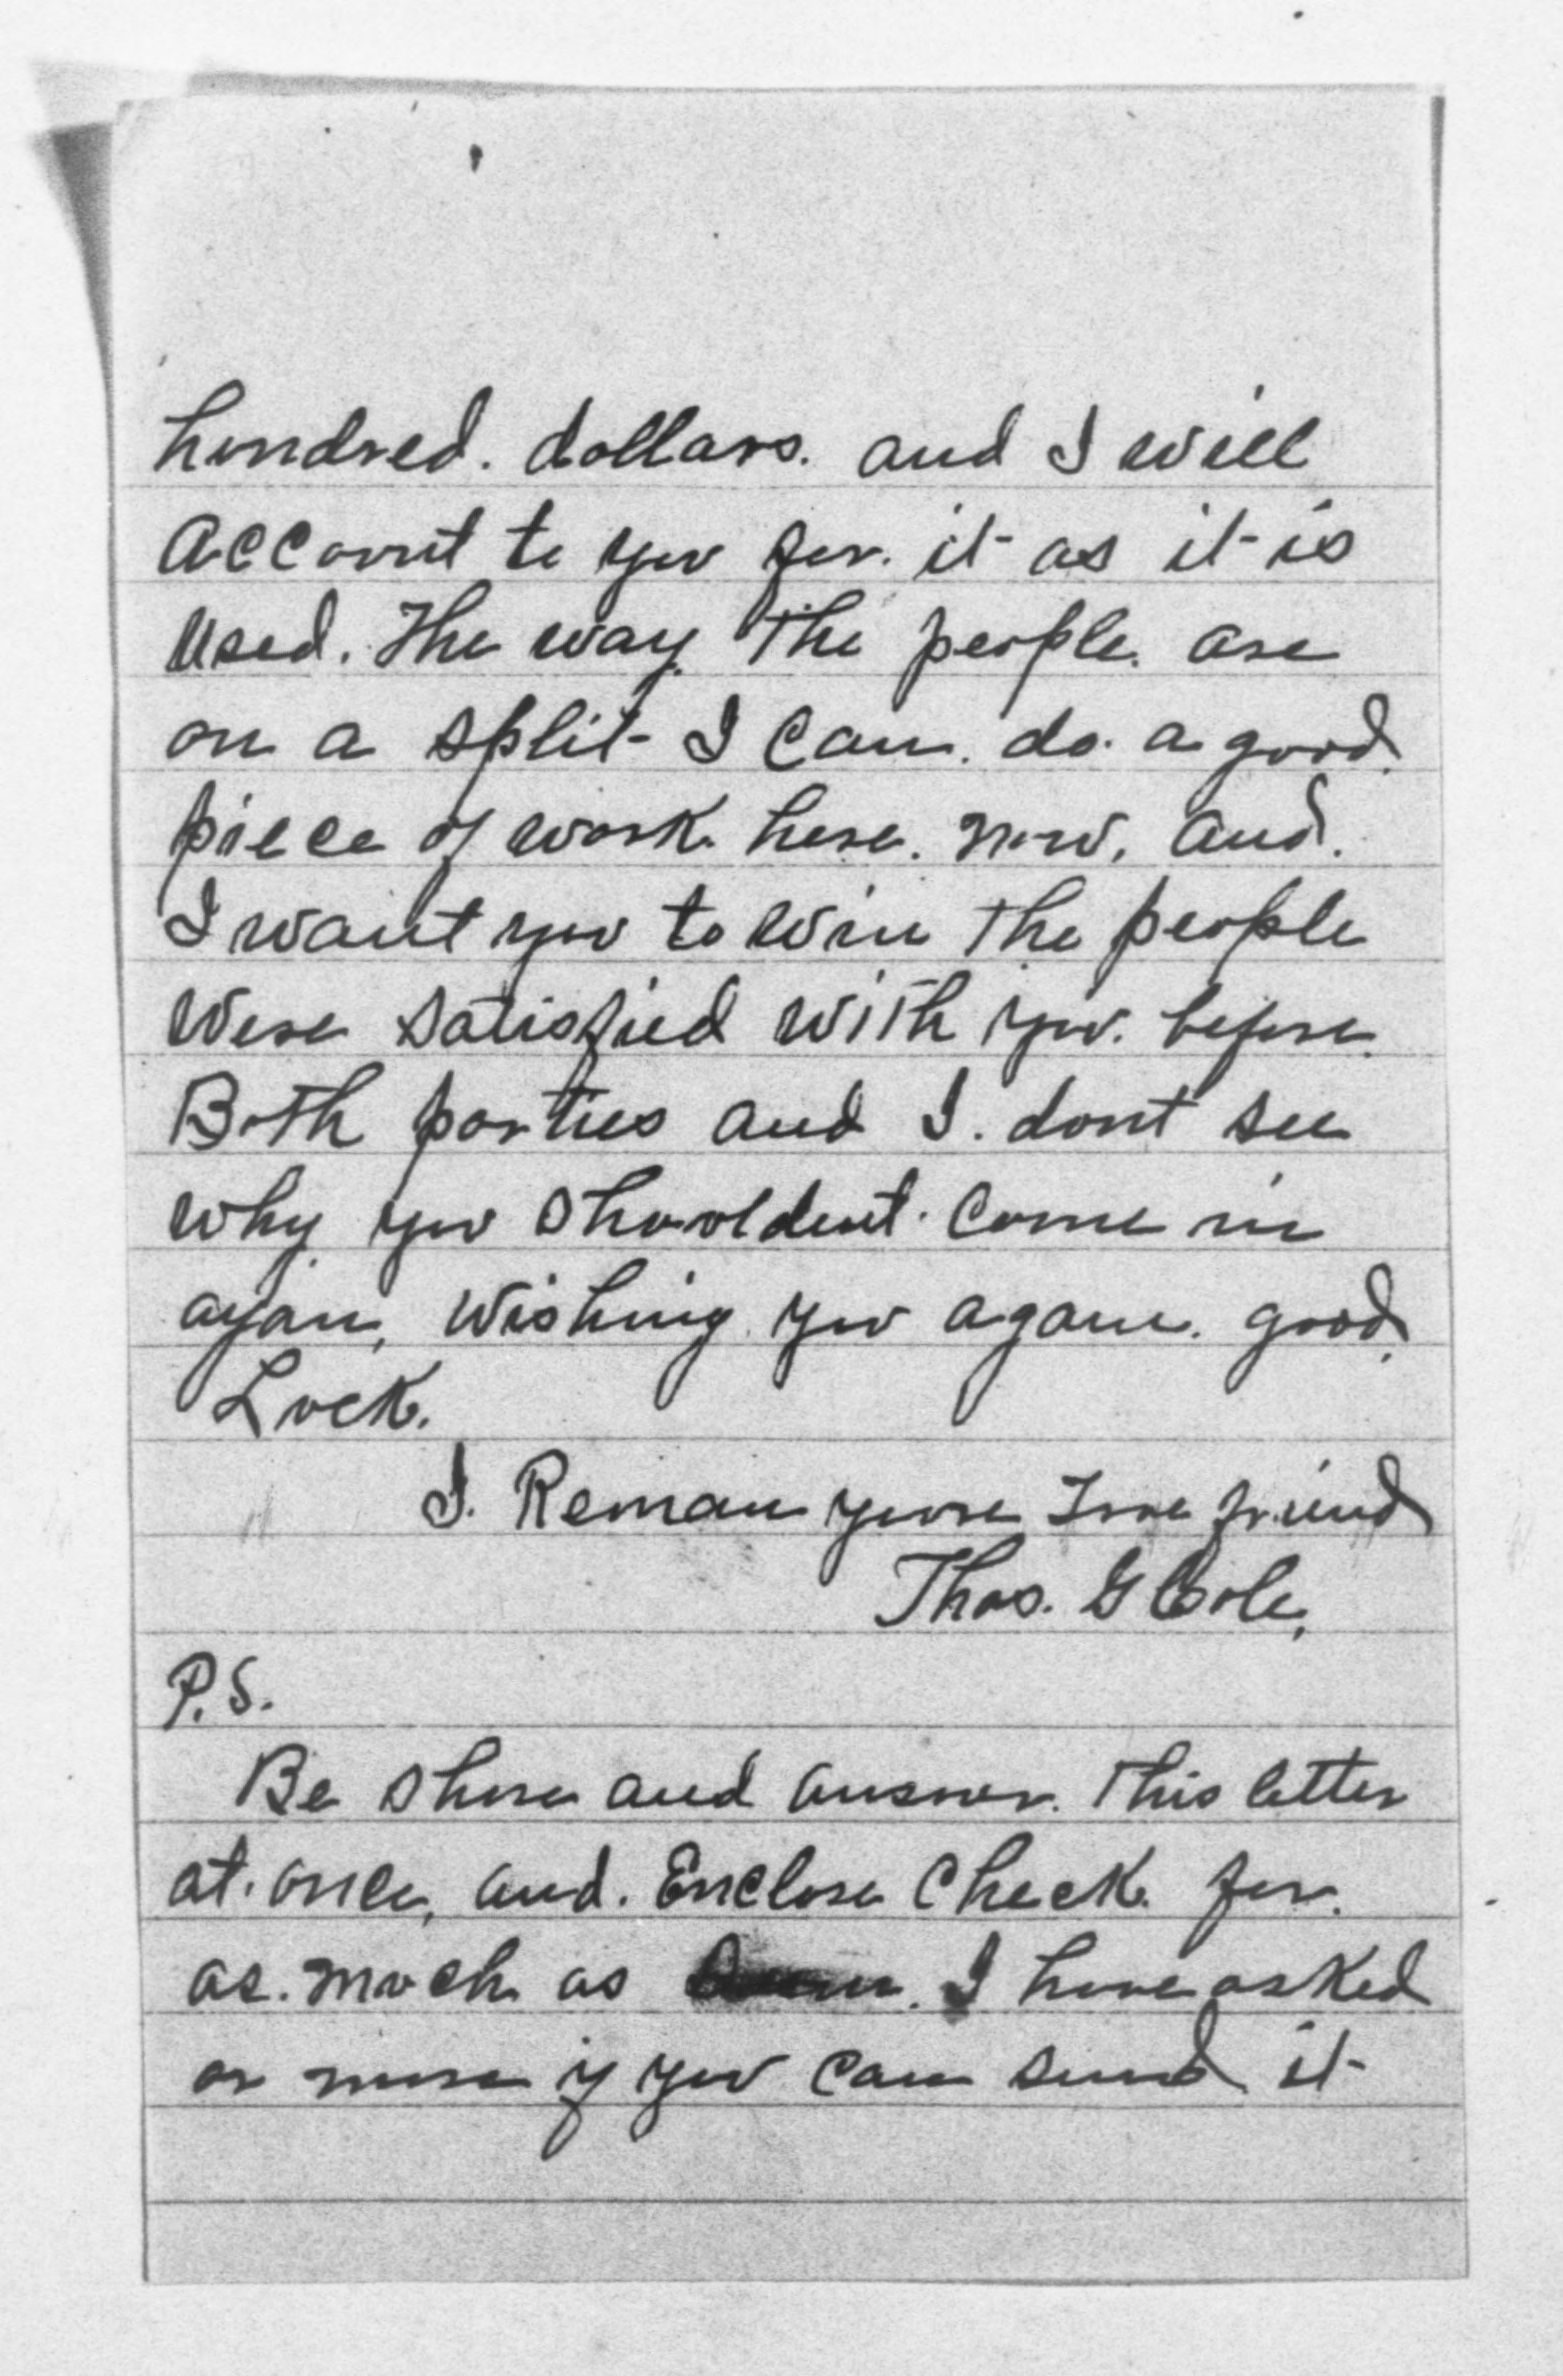 hundred. dollars. and I will
account to you for. it as it is
used. The way the people. are
on a split I can. do. a good.
piece of work here. now. and.
I want you to win the people
were satisfied with you. before.
Both parties and I. dont see
why you shouldent. come in
agan, wishing you agane. good.
Luck.
I. Reman youre True friend
Thos. G Cole,
P.S.
Be shure and answer. this letter
at. once, and. Enclose check for.
as. much as I have asked
or more if you can send it